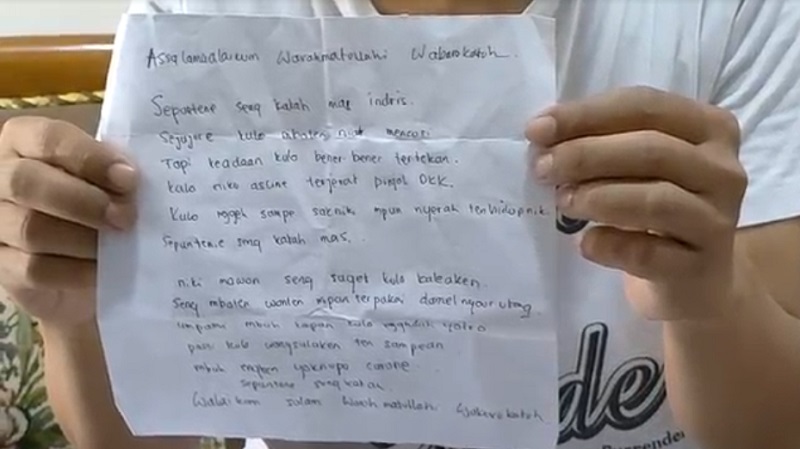 Assalamualaikum Warahmatullahi Wabarokatoh.
Sepuntene seng katah mas indris.
Sejujore kulo mboten niat mencuri
Tapi keadaan kulo bener-bener tertekan.
kalo niko asline terjerat pinjol DKK.
Kulo nggeh sampe sakniki mpun nyerah ten
Sepuntene seng katah mas.
niki mawon seng saget kulo baleaken.
Seng mboten wonten mpun terpakai damel nyaur utang.
umpami mbuh kapan kulo nggadah yotro
pasti kulo wangsulaken ten sampean
mbuh yoknopo carane
sepuntene seng katah.
Walaikum salam Warohmatullahi Wabarokatoh
de